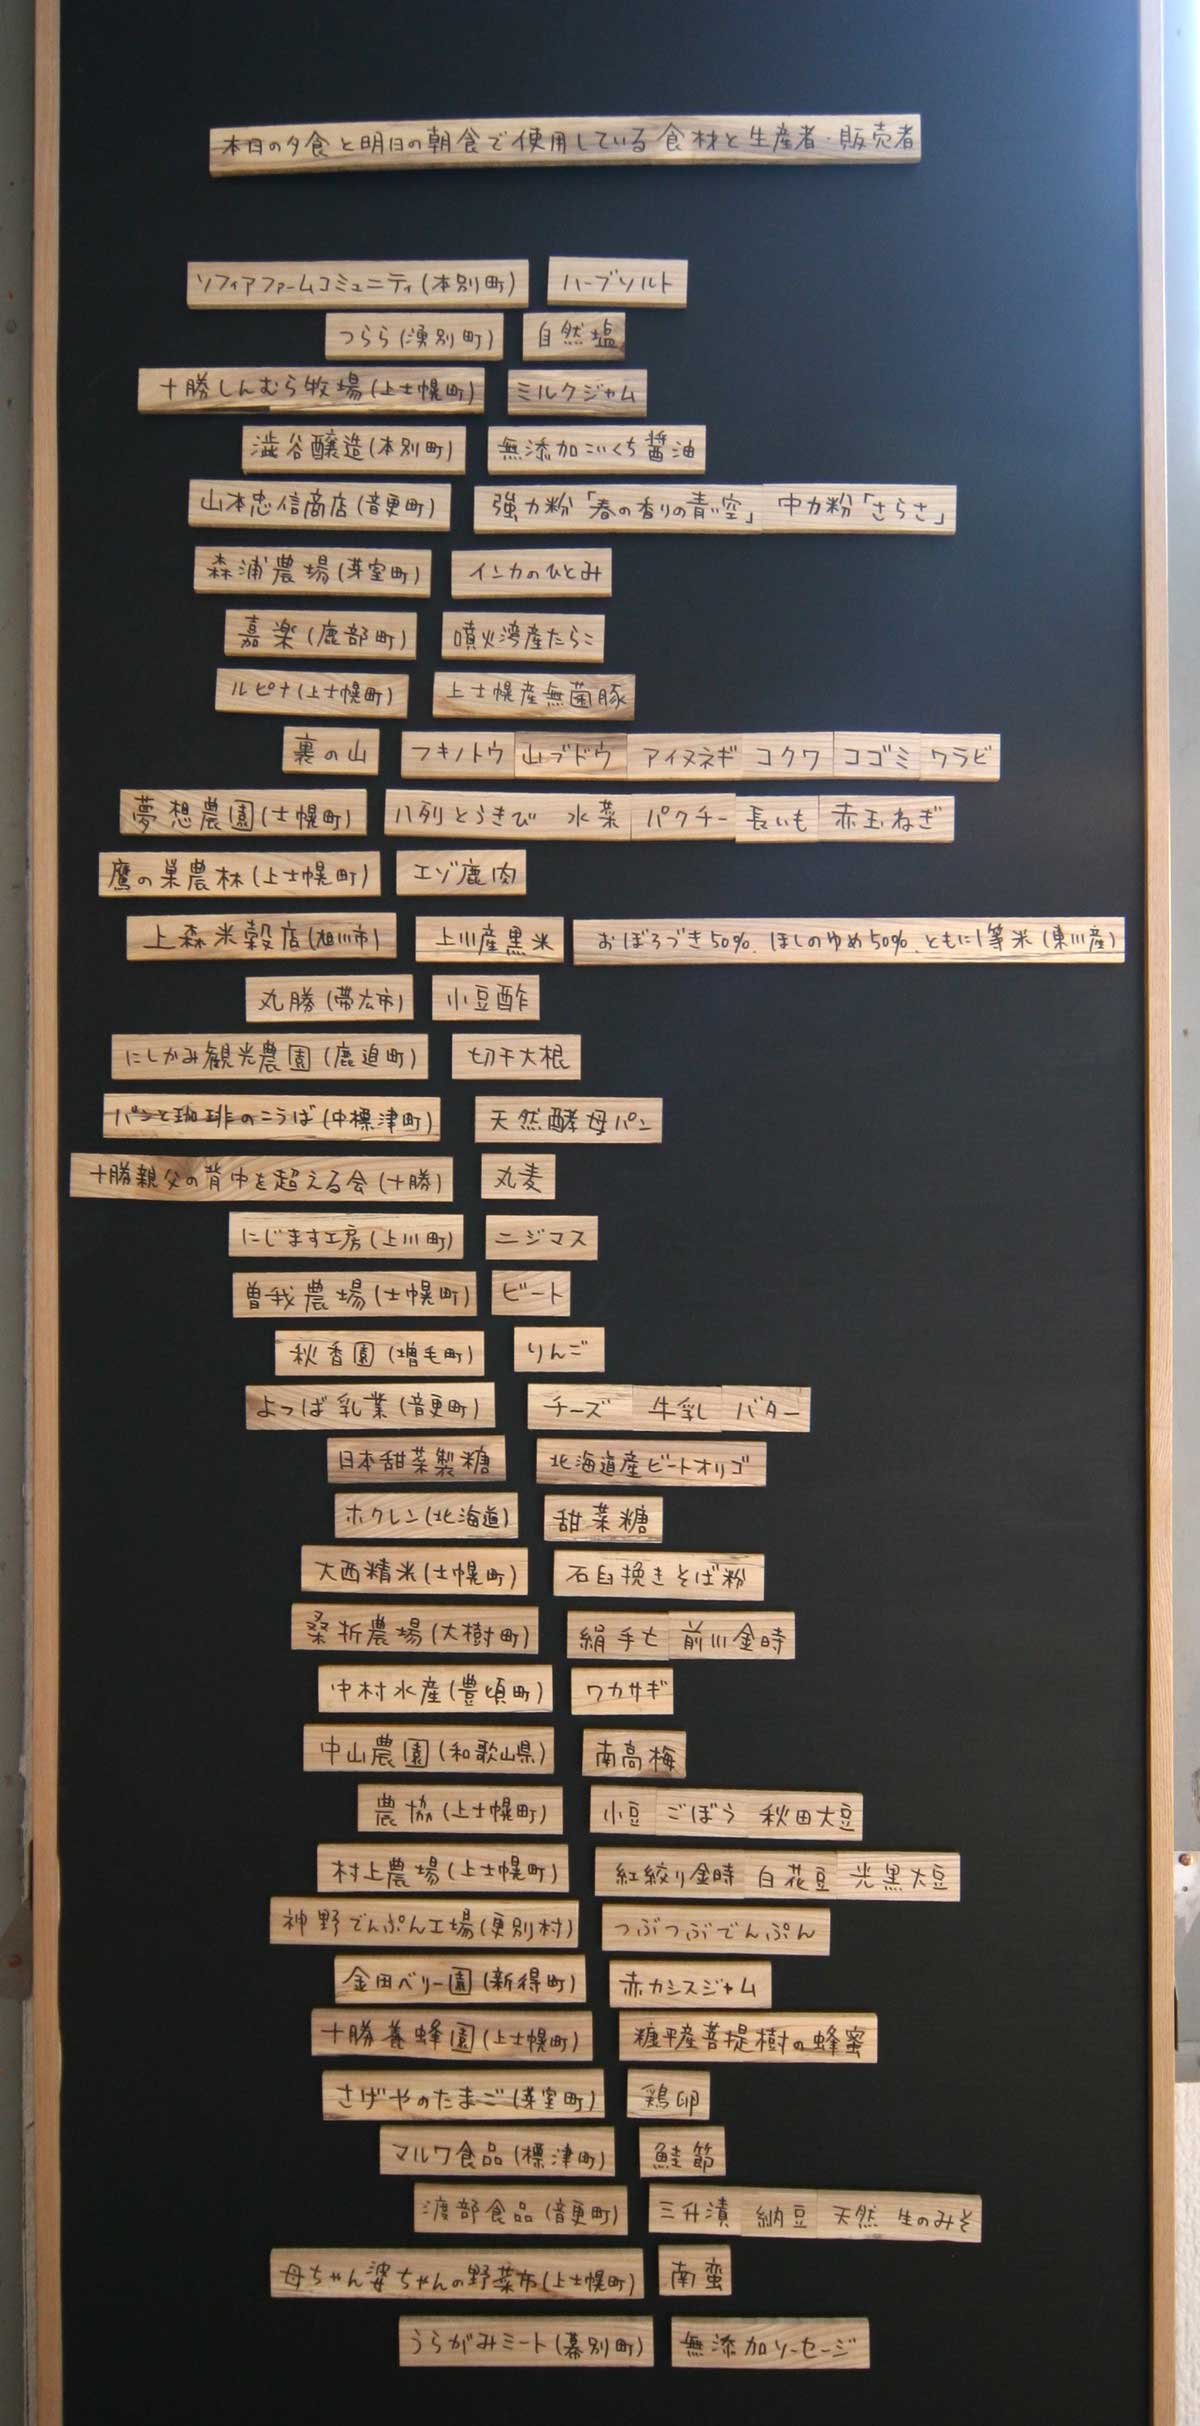 本日の夕食と明日の朝食で使用している食材と生産者・販売者
ソフィアファームコミュニティ(本別町) ハーブソルト
つらら(湧別町) 自然塩
十勝しんむら牧場(上士幌町) ミルクジャム
澁谷醸造(本別町) 無添加こいくち醤油
山本忠信商店(音更町) 強力粉「春の香りの青い空」 中力粉「さらさ」
森浦農場(芽室町) インカのひとみ
嘉楽(鹿部町) 噴火湾産たらこ
ルピナ(上士幌町) 上士幌産無菌豚
裏の山 フキノトウ 山ブドウ アイヌネギ コクワ コゴミ ワラビ
夢想農園(士幌町) 八列とうきび 水菜 パクチー 長いも 赤玉ねぎ
鷹の巣農林(上士幌町) エゾ鹿肉
上森米穀店(旭川市) 上川産黒米 おぼろづき50%、ほしのゆめ50%、ともに1等米(東川産)
丸勝(帯広市) 小豆酢
にしかみ観光農園(鹿追町) 切干大根
パンと珈琲のこうば(中標津町) 天然酵母パン
十勝親父の背中を超える会(十勝) 丸麦
にじます工房(上川町) ニジマス
曽我農場(士幌町) ビート
秋香園(増毛町) りんご
よつば乳業(音更町) チーズ 牛乳 バター
日本甜菜製糖 北海道産ビートオリゴ
ホクレン(北海道) 甜菜糖
大西精米(士幌町) 石臼挽きそば粉
桑折農場(大樹町) 絹手亡 前川金時
中村水産(豊頃町) ワカサギ
中山農園(和歌山県) 南高梅
農協(上士幌町) 小豆 ごぼう 秋田大豆
村上農場(上士幌町) 紅絞り金時 白花豆 光黒大豆
神野でんぷん工場(更別村) つぶつぶでんぷん
金田ベリー園(新得町) 赤カシスジャム
十勝養蜂園(上士幌町) 糠平産菩提樹の蜂蜜
さげやのたまご(芽室町) 鶏卵
マルワ食品(標津町) 鮭節
渡部食品(音更町) 三升漬 納豆 天然 生のみそ
母ちゃん婆ちゃんの野菜市(上士幌町) 南蛮
うらがみミート(幕別町) 無添加ソーセージ